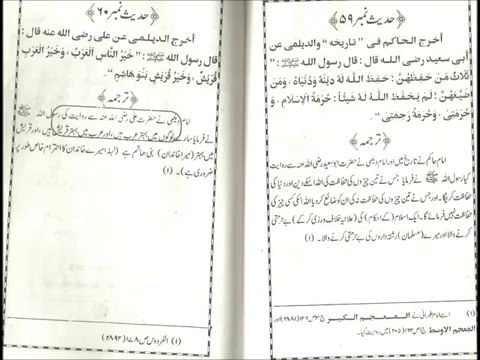 حدیث نمبر ۵۹
أخرج الحاكم فى "تاريخه" والديلمى عن
أبى سعيد رضى الله قال: قال رسول الله ﷺ:
ثَلَاثٌ مَنْ حَفِظَهُنَّ: حَفِظَ اللّٰهُ لَهُ دِيْنَهُ وَدُنْيَاهُ، وَمَنْ
ضَيَّعَهُنَّ: لَمْ يَحْفَظِ اللّٰهُ لَهُ شَيْئاً: حُرْمَةُ الْاِسْلَامِ، وَ
حُرْمَتِىْ، وَحُرْمَةُ رَحِمَتِىْ.
ترجمہ
امام حاکم نے تاریخ میں اور امام دیلمی نے حضرت ابو سعید رضی اللہ عنہ سے روایت
کیا رسول اللہ ﷺ نے فرمایا جس نے تین چیزوں کی حفاظت کی اللہ اسکے دین اور دنیا کی
حفاظت کریگا۔ اور جس نے تین چیزوں کی حفاظت نہ کی ان کو ضائع کر دیا اللہ اسکی کسی چیز کی
حفاظت نہیں فرمائے گا۔ ایک اسلام (کے احکام) کی (علانیہ خلاف ورزی کر کے) بے حرمتی
کرنے والا اور میرے (مسلمان) رشتہ داروں کی بے حرمتی کرنے والا۔ (۱)
(۱) اسے امام طبرانی نے المعجم الكبير ج ۳ ص ۱۲۶ (۲۸۸۱) اور
المعجم الاوسط ج ۱ ص ۱۶۲ (۲۰۵) میں روایت کیا۔
حدیث نمبر ۶۰
أخرج الديلمى عن على رضى الله عنه قال:
قال رسول الله ﷺ: "خَيْرُ النَّاسِ الْعَرَبُ، وَخَيْرُ الْعَرَبِ
قُرَيْشٌ، وَخَيْرُ قُرَيْشٍ بَنُوْ هَاشِمٍ"
ترجمہ
امام دیلمی نے حضرت علی رضی اللہ عنہ سے روایت کی رسول اللہ ﷺ
نے فرمایا سارے لوگوں میں بہتر عرب ہیں، اور عرب میں بہتر قریش ہیں، اور قریش
میں بہتر (میرا خاندان) بنی ہاشم ہے (لہذا میرے خاندان کا احترام خاص طور پر
ضروری ہے)۔ (۱)
(۱) الفردوس ص ۱۷۸ (۲۸۹۲)